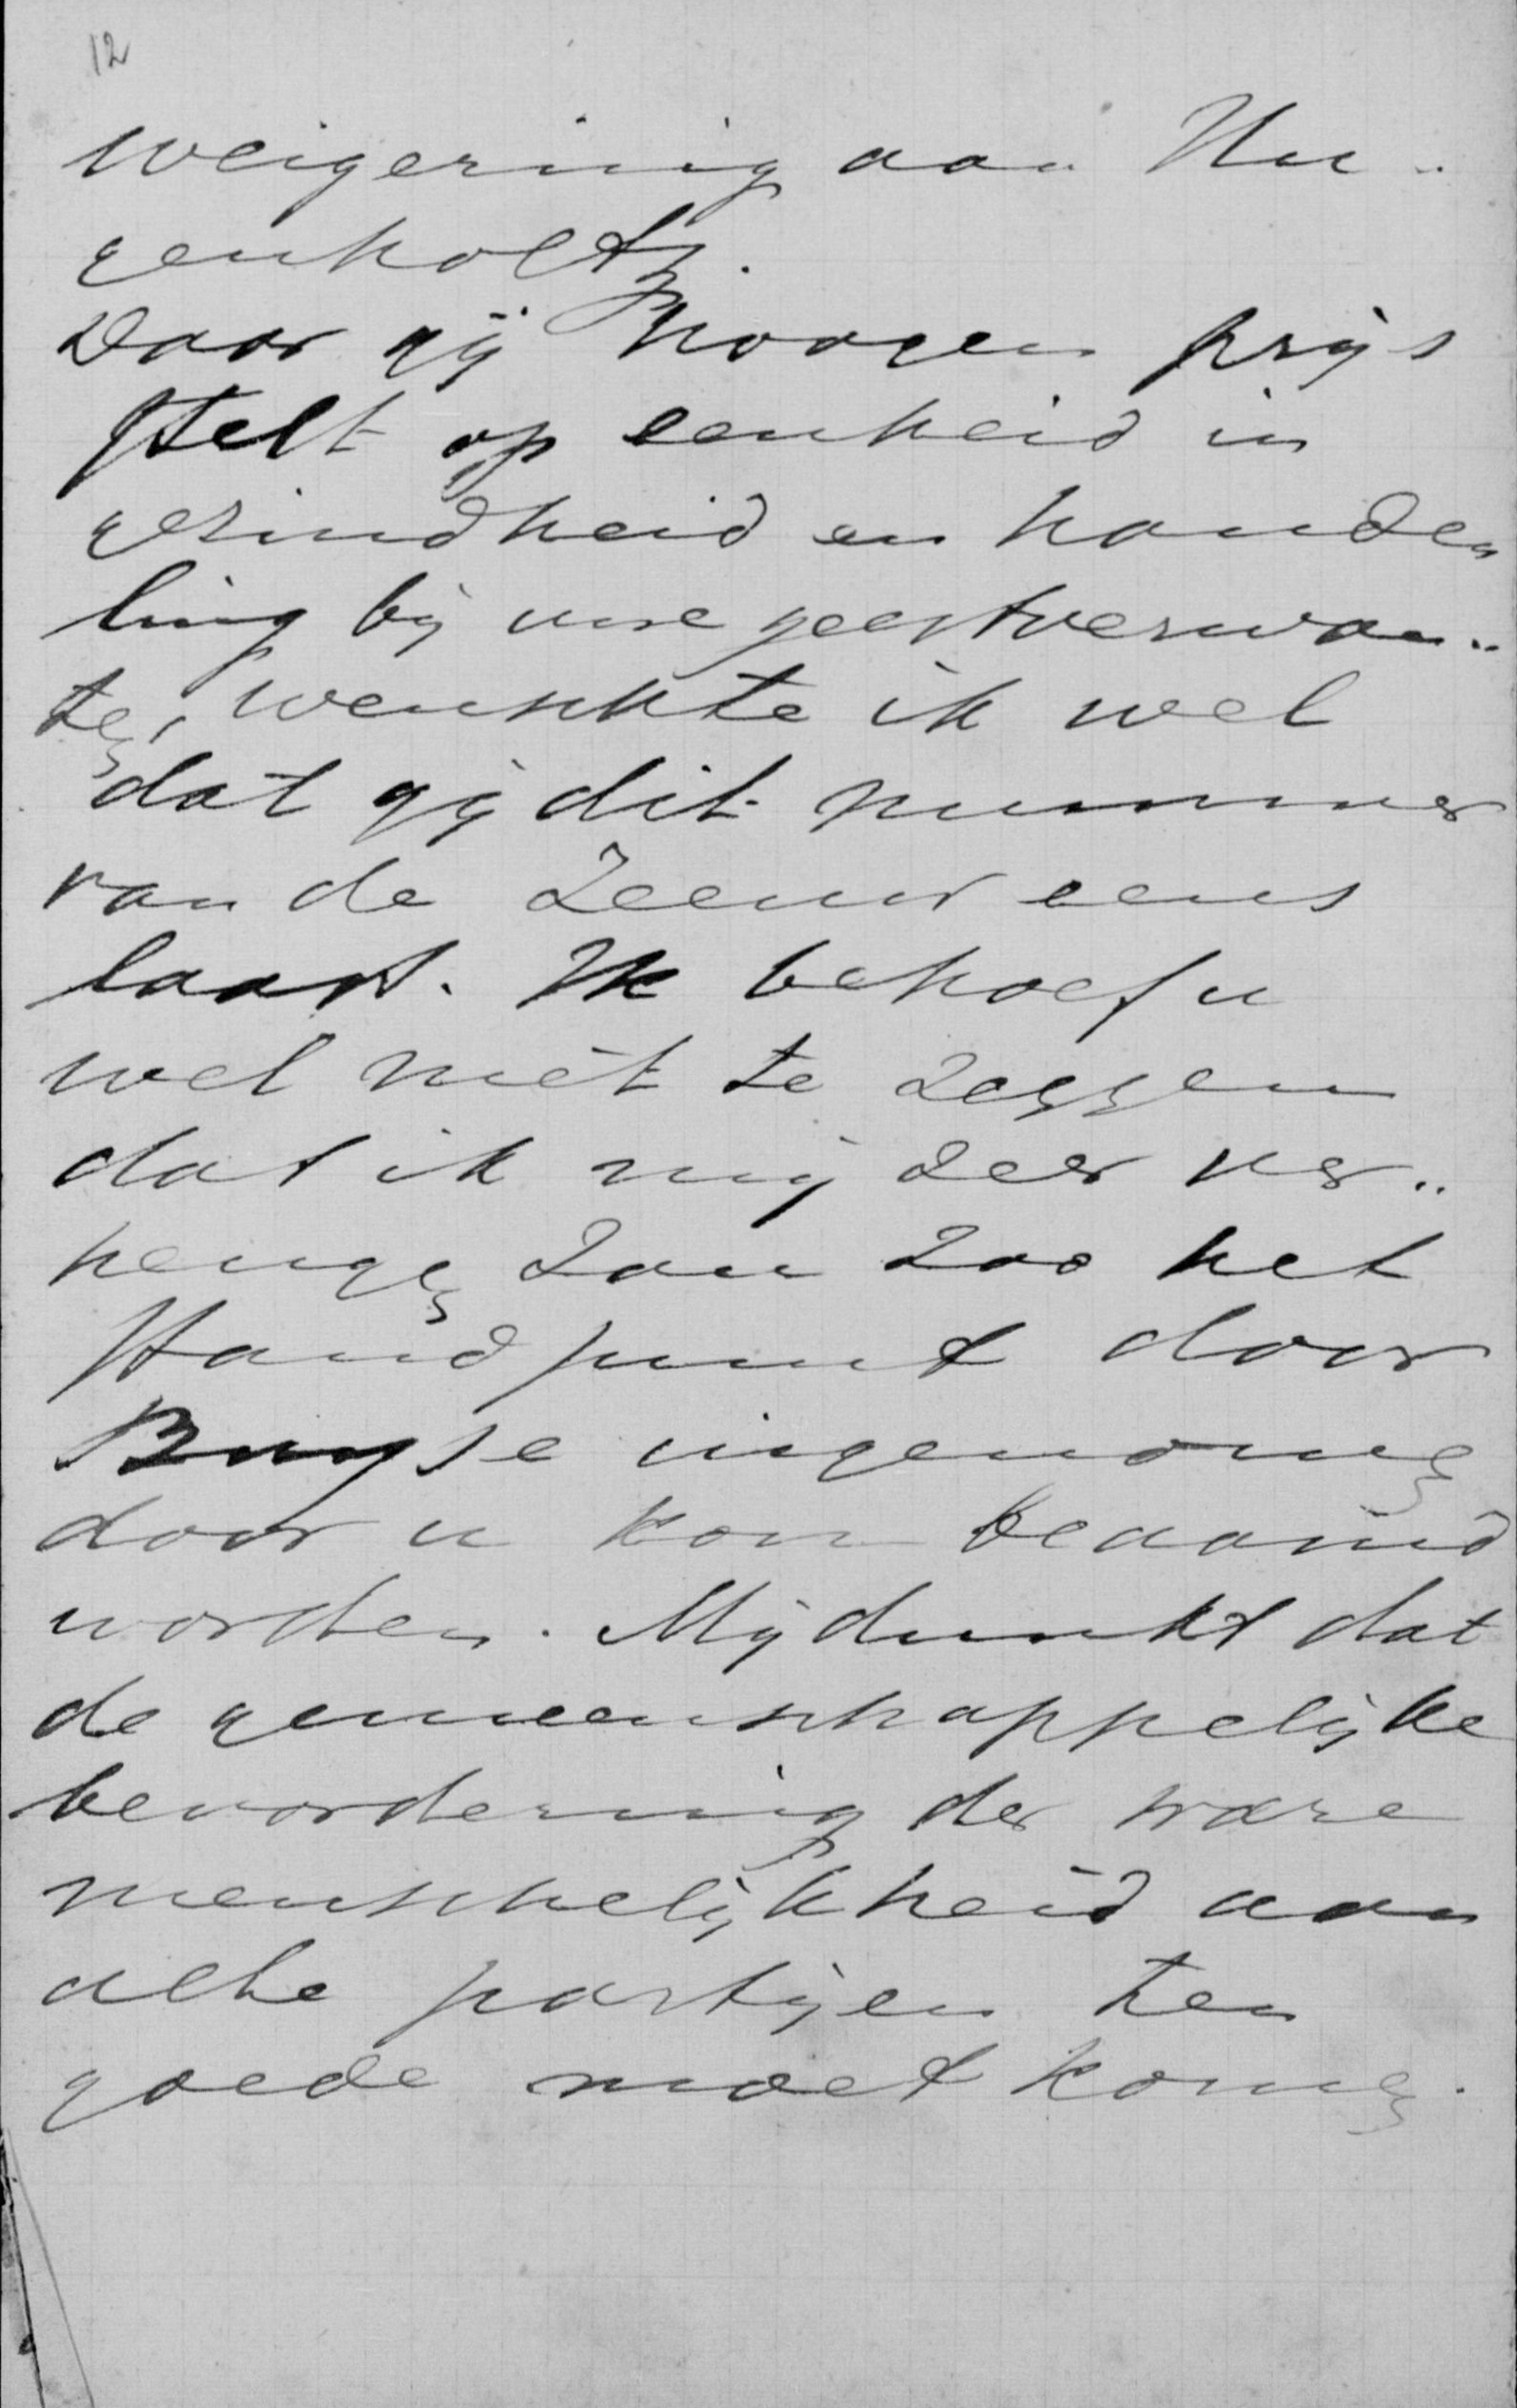 12
weigering aan Hu-
genholtz.
Daar gij hoogen prijs
stelt op eenheid in
gezindheid en handen
ling bij uwe geestverwan..
ten, wenschte ik wel
dat gij dit nummer
van de Zeeuw eens
laast. Ik behoef u
wel niet te zeggen
dat ik mij zeer ver..
heugen zou zoo het
standpunt door
Buyse ingenomen
door u kon beaamd
worden. Mij dunkt dat
de gemeenschappelijke
bevordering der ware
menschelijkheid aan
alle partijen ten
goede moet komen.